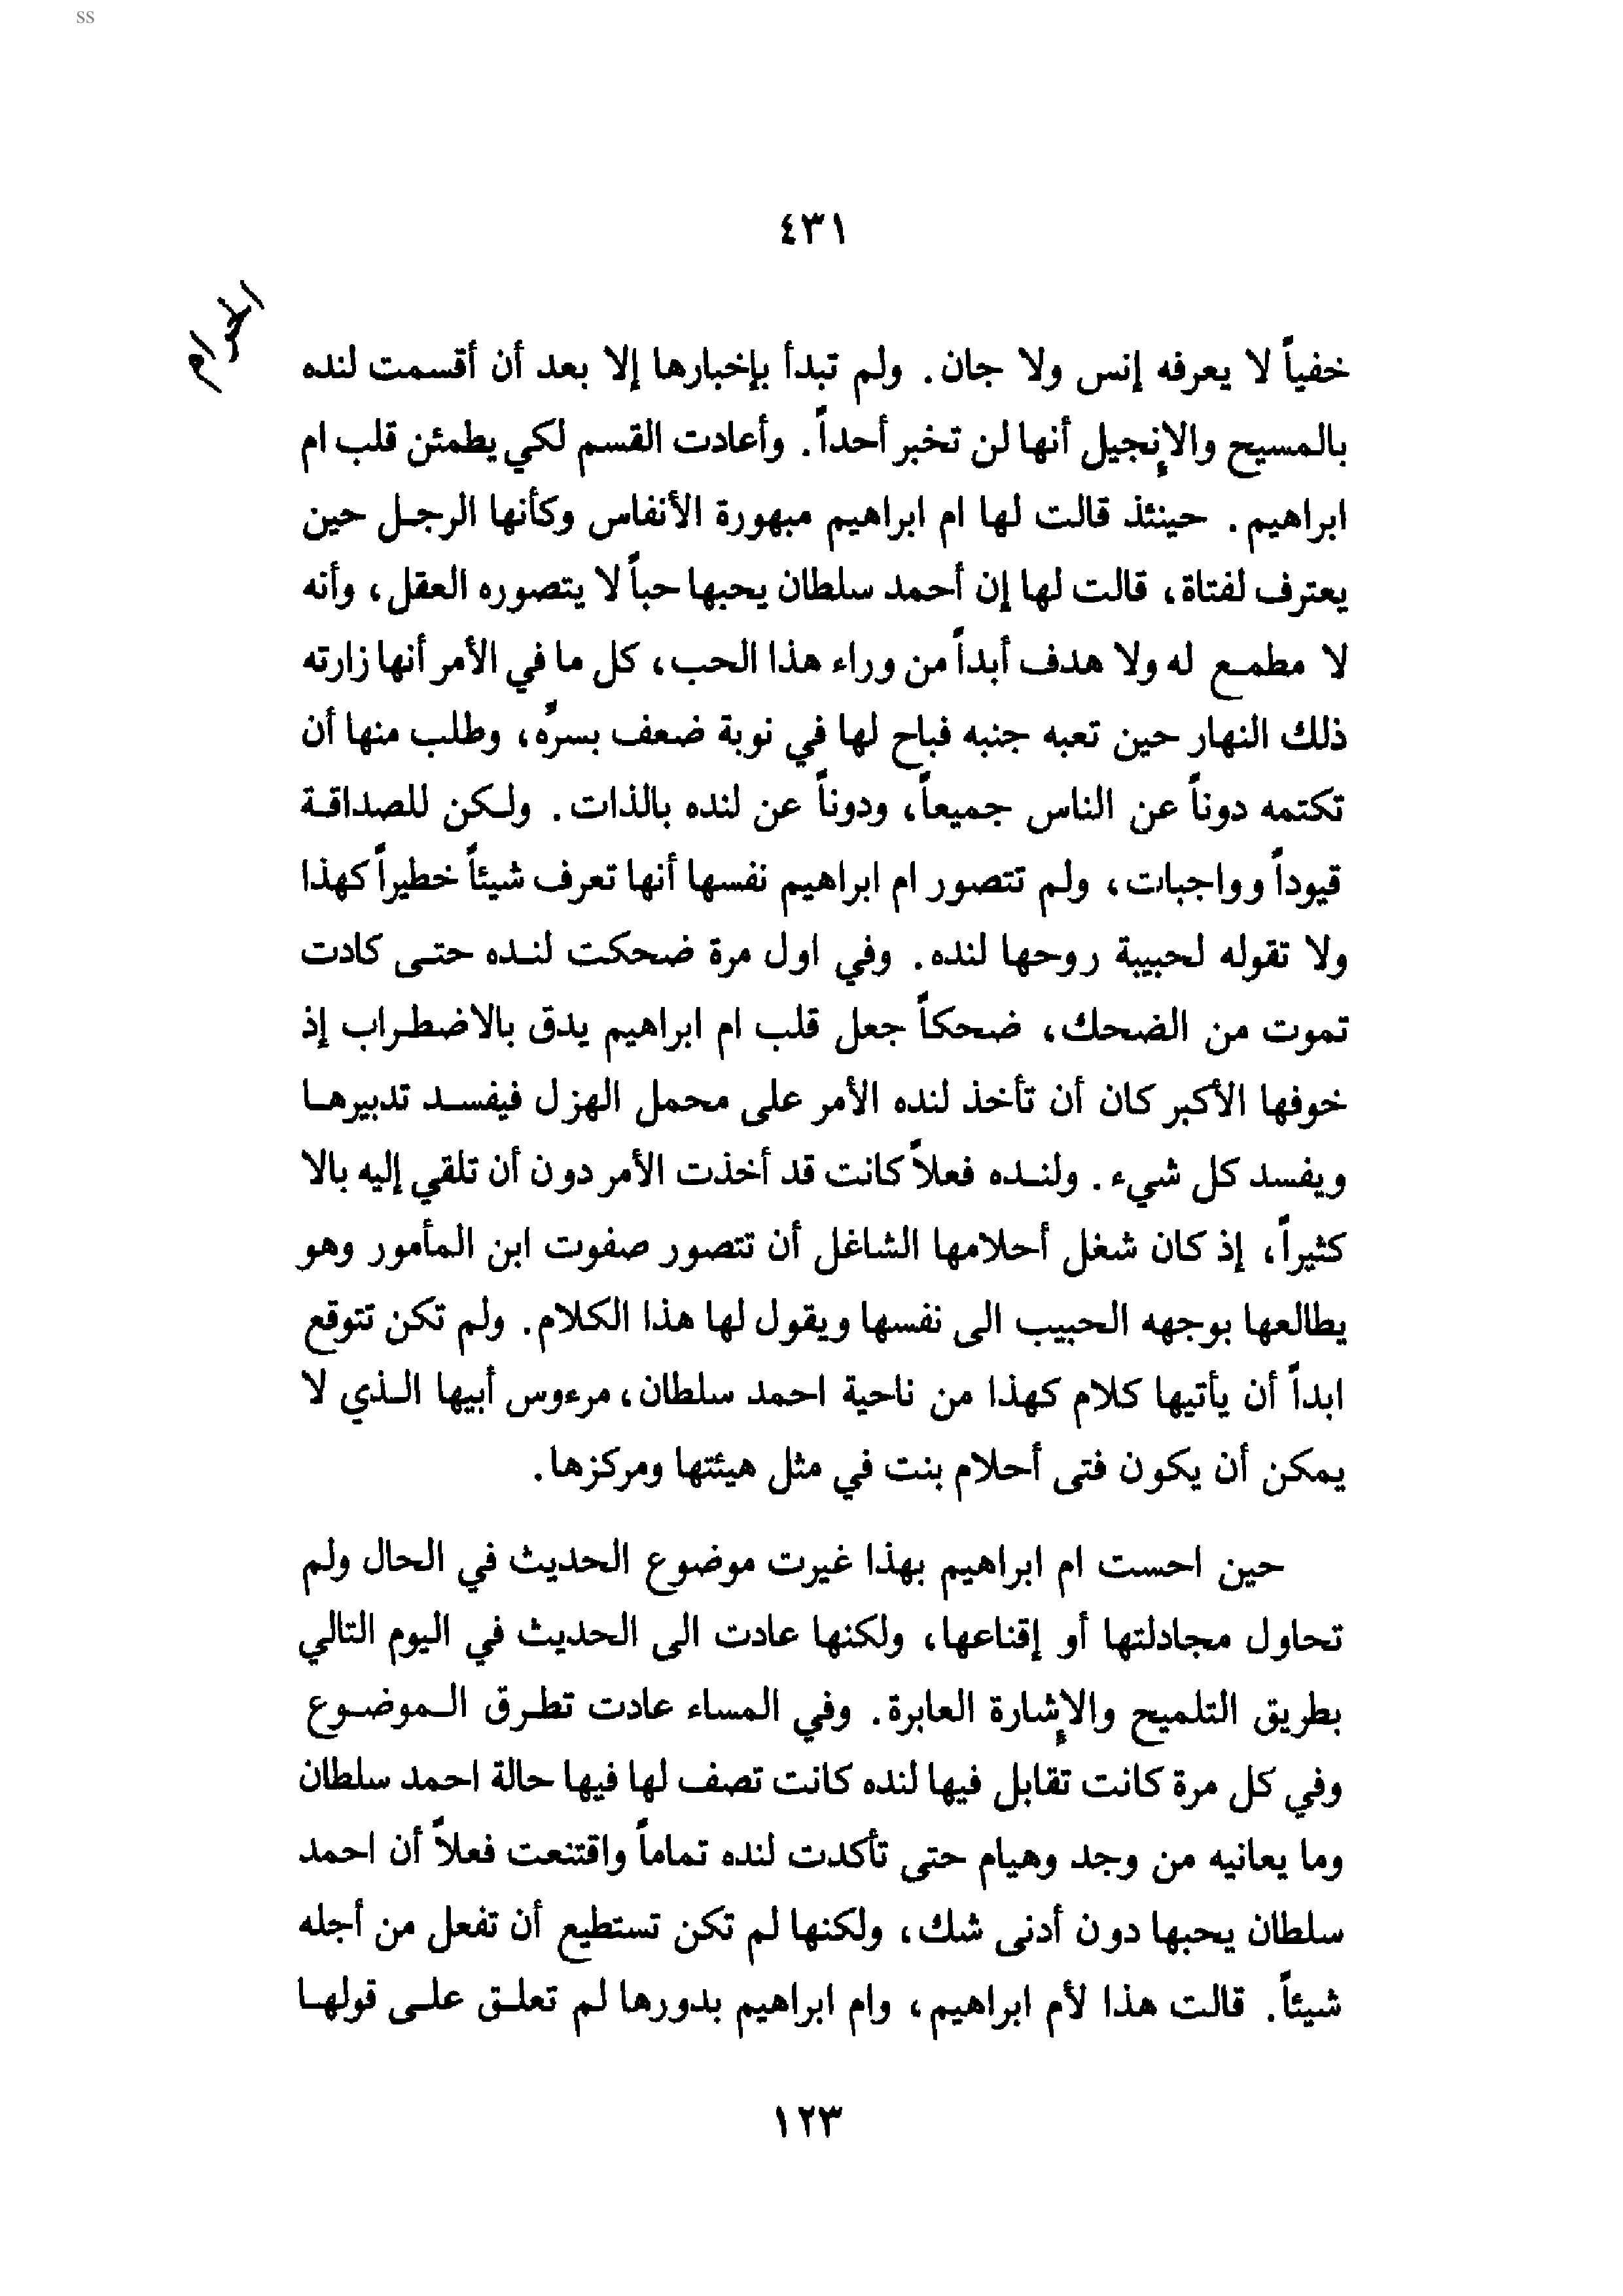 ss
٤٣١
الحرام
خفياً لا يعرفه إنس ولا جان. ولم تبدأ بإخبارها إلا بعد أن أقسمت لنده
بالمسيح والإنجيل أنها لن تخبر أحداً. وأعادت القسم لكي يطمئن قلب ام
ابراهيم. حينئذ قالت لها ام ابراهيم مبهورة الأنفاس وكأنها الرجل حين
يعترف لفتاة، قالت لها إن أحمد سلطان يحبها حباً لا يتصوره العقل، وأنه
لا مطمع له ولا هدف أبداً من وراء هذا الحب، كل ما في الأمر أنها زارته
ذلك النهار حين تعبه جنبه فباح لها في نوبة ضعف بسرّه، وطلب منها أن
تكتمه دوناً عن الناس جميعاً، ودوناً عن لنده بالذات. ولكن للصداقة
قيوداً وواجبات، ولم تتصور ام ابراهيم نفسها أنها تعرف شيئاً خطيراً كهذا
ولا تقوله لحبيبة روحها لنده. وفي اول مرة ضحكت لنده حتى كادت
تموت من الضحك، ضحكاً جعل قلب ام ابراهيم يدق بالاضطراب إذ
خوفها الأكبر كان أن تأخذ لنده الأمر على محمل الهزل فيفسد تدبيرها
ويفسد كل شيء. ولنده فعلاً كانت قد أخذت الأمر دون أن تلقي إليه بالا
كثيراً، إذ كان شغل أحلامها الشاغل أن تتصور صفوت ابن المأمور وهو
يطالعها بوجهه الحبيب الى نفسها ويقول لها هذا الكلام. ولم تكن تتوقع
ابداً أن يأتيها كلام كهذا من ناحية احمد سلطان، مرءوس أبيها الذي لا
يمكن أن يكون فتى أحلام بنت في مثل هيئتها ومركزها.
حين احست ام ابراهيم بهذا غيرت موضوع الحديث في الحال ولم
تحاول مجادلتها أو إقناعها، ولكنها عادت الى الحديث في اليوم التالي
بطريق التلميح والإشارة العابرة. وفي المساء عادت تطرق الموضوع
وفي كل مرة كانت تقابل فيها لنده كانت تصف لها فيها حالة احمد سلطان
وما يعانيه من وجد وهيام حتى تأكدت لنده تماماً واقتنعت فعلاً أن احمد
سلطان يحبها دون أدنى شك، ولكنها لم تكن تستطيع أن تفعل من أجله
شيئاً. قالت هذا لأم ابراهيم، وام ابراهيم بدورها لم تعلق على قولها
١٢٣